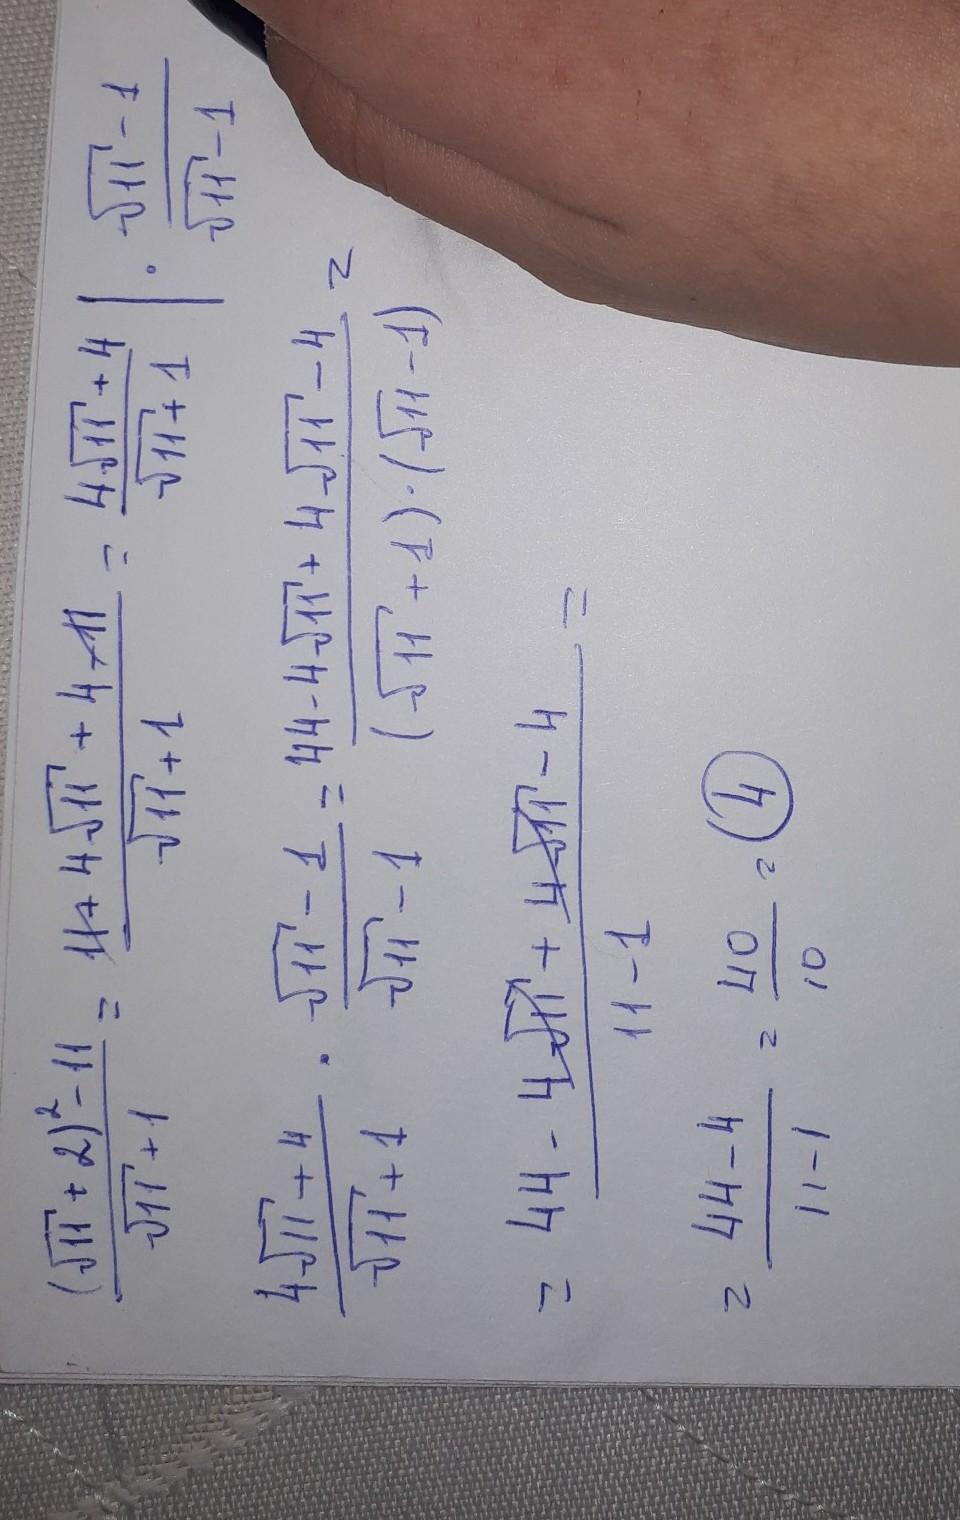 (√11 + 2)² - 11 / √11 + 1 = 11 + 4√11 + 4 - 11 / √11 + 1 = 4√11 + 4 / √11 + 1 | · √11 - 1 / √11 - 1
4√11 + 4 / √11 + 1 · √11 - 1 / √11 - 1 = 44 - 4√11 + 4√11 - 4 / (√11 + 1) · (√11 - 1) =
= 44 - 4√11 + 4√11 - 4 / 11 - 1 =
= 44 - 4 / 11 - 1 = 40 / 10 = 4